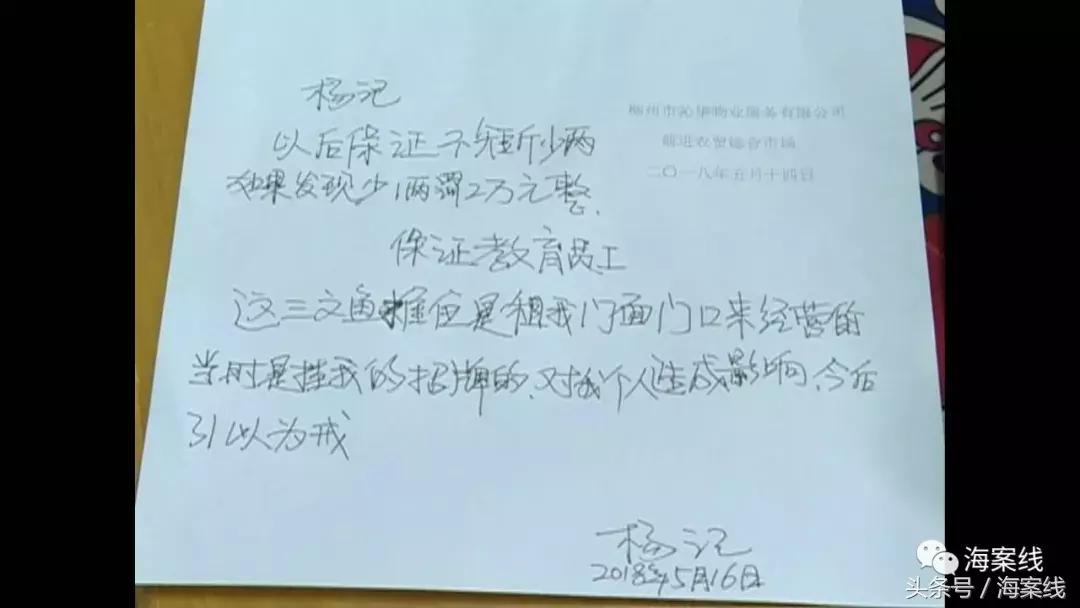 杨记
以后保证不短斤少两
如果发现少1两罚2万元整.
保证教育员工
这三文鱼摊位是租我门面门口来经营的
当时是挂我的招牌的.对我个人造成影响.今后
引以为戒
杨记
2018年5月16日
柳州市沁华物业服务有限公司
前进农贸综合市场
二〇一八年五月十四日
海案线
头条号 / 海案线